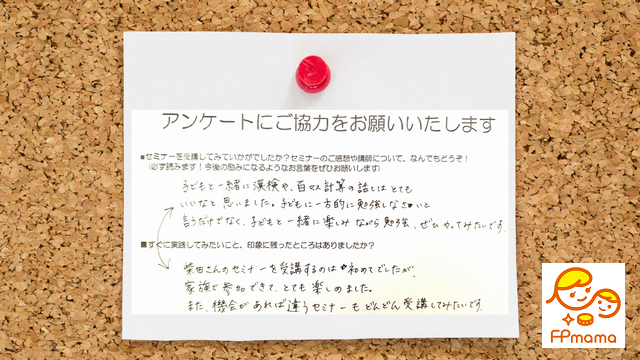 アンケートにご協力をお願いいたします
■セミナーを受講してみていかがでしたか？セミナーのご感想や講師について、なんでもどうぞ！
（必ず読みます！今後の励みになるようなお言葉をぜひお願いします）
子どもと一緒に漢検や、百マス計算の話しはとても
いいなと思いました。子どもに一方的に勉強しなさいと
言うだけでなく、子どもと一緒に楽しみながら勉強、ぜひやってみたいです。
■すぐに実践してみたいこと、印象に残ったところはありましたか？
柴田さんのセミナーを受講するのは初めてでしたが、
家族で参加できて、とても楽しめました。
また、機会があれば違うセミナーもどんどん受講してみたいです。
FPmama